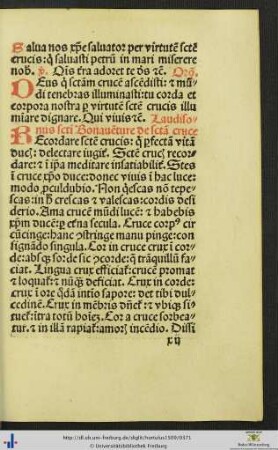 Salua nos xp̄e saluator per virtutē sctē
crucis: q̇ saluasti petrū in mari miserere
nob. ℣. Oīs t̄ra adoret te ds̄ ⁊ē. Orō.
Deus q̇ sctām crucē ascēdisti: ⁊ mū-
di tenebras illuminasti: tu corda et
corpora nostra ꝑ virtutē sctē crucis illu
miāre dignare. Qui viuis ⁊ē. Laudismus
scti Bonauēture de sctā cruce
Recordare sctē crucis: q̇ ꝑfectā vitā
ducꝭ: delectare iugiť. Sctē crucꝭ recor
dare: ⁊ ip̄a meditare insatiabilť. Stes
ī cruce xp̄o duce: donec viuis ī hac luce:
modo ꝓculdubio. Non qͥescas nō tepe-
scas: in ħ crescas ⁊ valescas: cordis desi
derio. Ama crucē mūdi lucē: ⁊ habebis
xp̄m ducē: ꝑ etna secula. Cruce corpꝰ cir
cūcinge: hanc ꝯstringe manu pinge: con
signādo singula. Cor in cruce crux ī cor-
de: absqꝫ sorde sic ꝯcorde: q̇ trāquillū fa-
ciat. Lingua crux efficiat: crucē promat
⁊ loquať: ⁊ nūqͣꝫ deficiat. Crux in corde:
crux ī ore q̇dā intio sapore: det tibi dul-
cedinē. Crux in mēbris dn̄eť ⁊ vbiqꝫ si-
tueť: ītra totū hoīeꝫ. Cor a cruce sorbea-
tur. ⁊ in illā rapiať: amorꝭ incēdio. Dissi
xij
http://dl.ub.uni-freiburg.de/diglit/hortulus1500/0371
© Universitätsbibliothek Freiburg
Baden-Württemberg